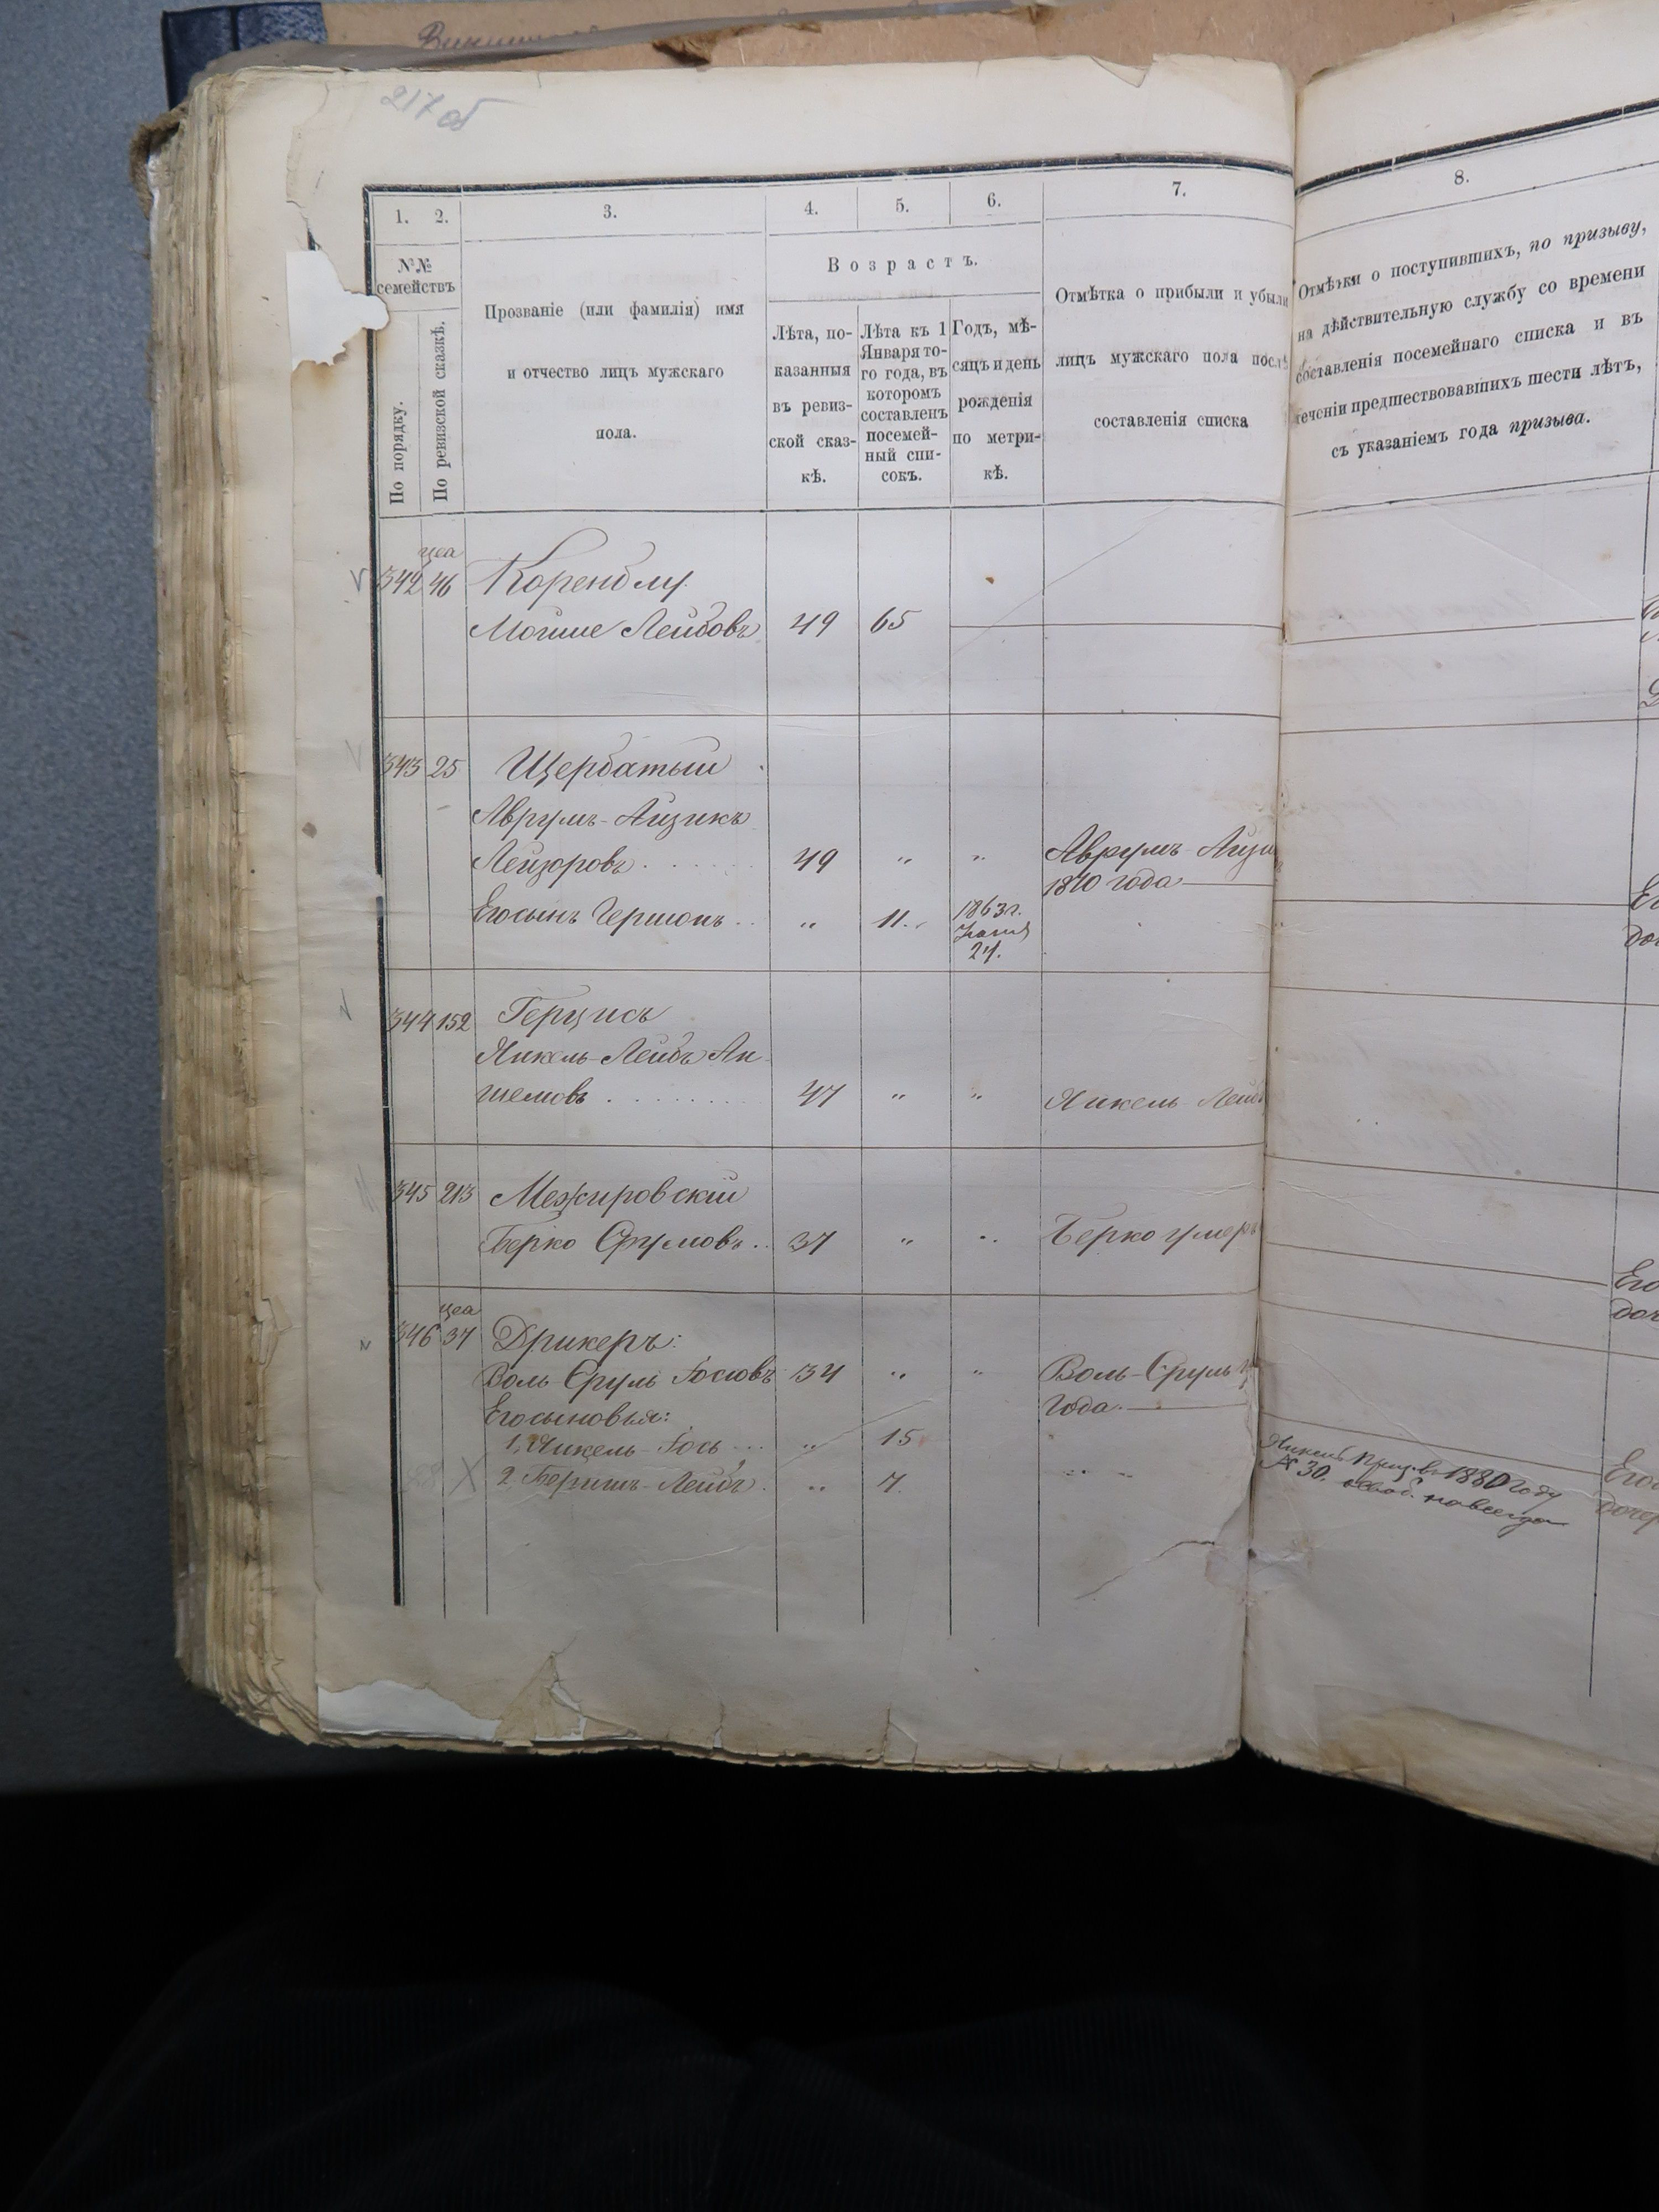 217 об
1. 2. 3. 4. 5. 6. 7. 8.
№№ семействъ
По порядку.
По ревизской сказкѣ.
Прозваніе (или фамилія) имя
и отчество лицъ мужскаго
пола.
Возрастъ.
Лѣта, по-
казанныя
въ ревиз-
ской сказ-
кѣ.
Лѣта къ 1
Января то-
го года, въ
которомъ
составленъ
посемей-
ный спи-
сокъ.
Годъ, мѣ-
сяцъ и день
рожденія
по метри-
кѣ.
Отмѣтка о прибыли и убыли
лицъ мужскаго пола послѣ
составленія списка
Отмѣтки о поступившихъ, по призыву,
на дѣйствительную службу со времени
составленія посемейнаго списка и въ
теченіи предшествовавшихъ шести лѣтъ,
съ указаніемъ года призыва.
342 46 Коренблу
Мошие Лейбовъ 49 65
343 25 Щербатый
Аврумъ-Айзикъ
Лейзоровъ 49 " " Аврумъ-Айзи
1870 года
Его сынъ Гершонъ " 11 1863 г.
24.
344 152 Герцисъ
Янкель-Лейбъ Ан-
шелювъ 47 " " Янкель-Лейб
345 213 Межировскій
Берко Срулювъ 37 " " Берко умеръ
346 37 Дрикеръ:
Воль-Сруль Іосіовъ 34 " " Воль-Сруль
года.
Его сыновья:
1. Янкель-Іось " 15
2 Беришъ-Лейбъ " 7.
Янкель 1880 году
№ 30. навсегда
Его